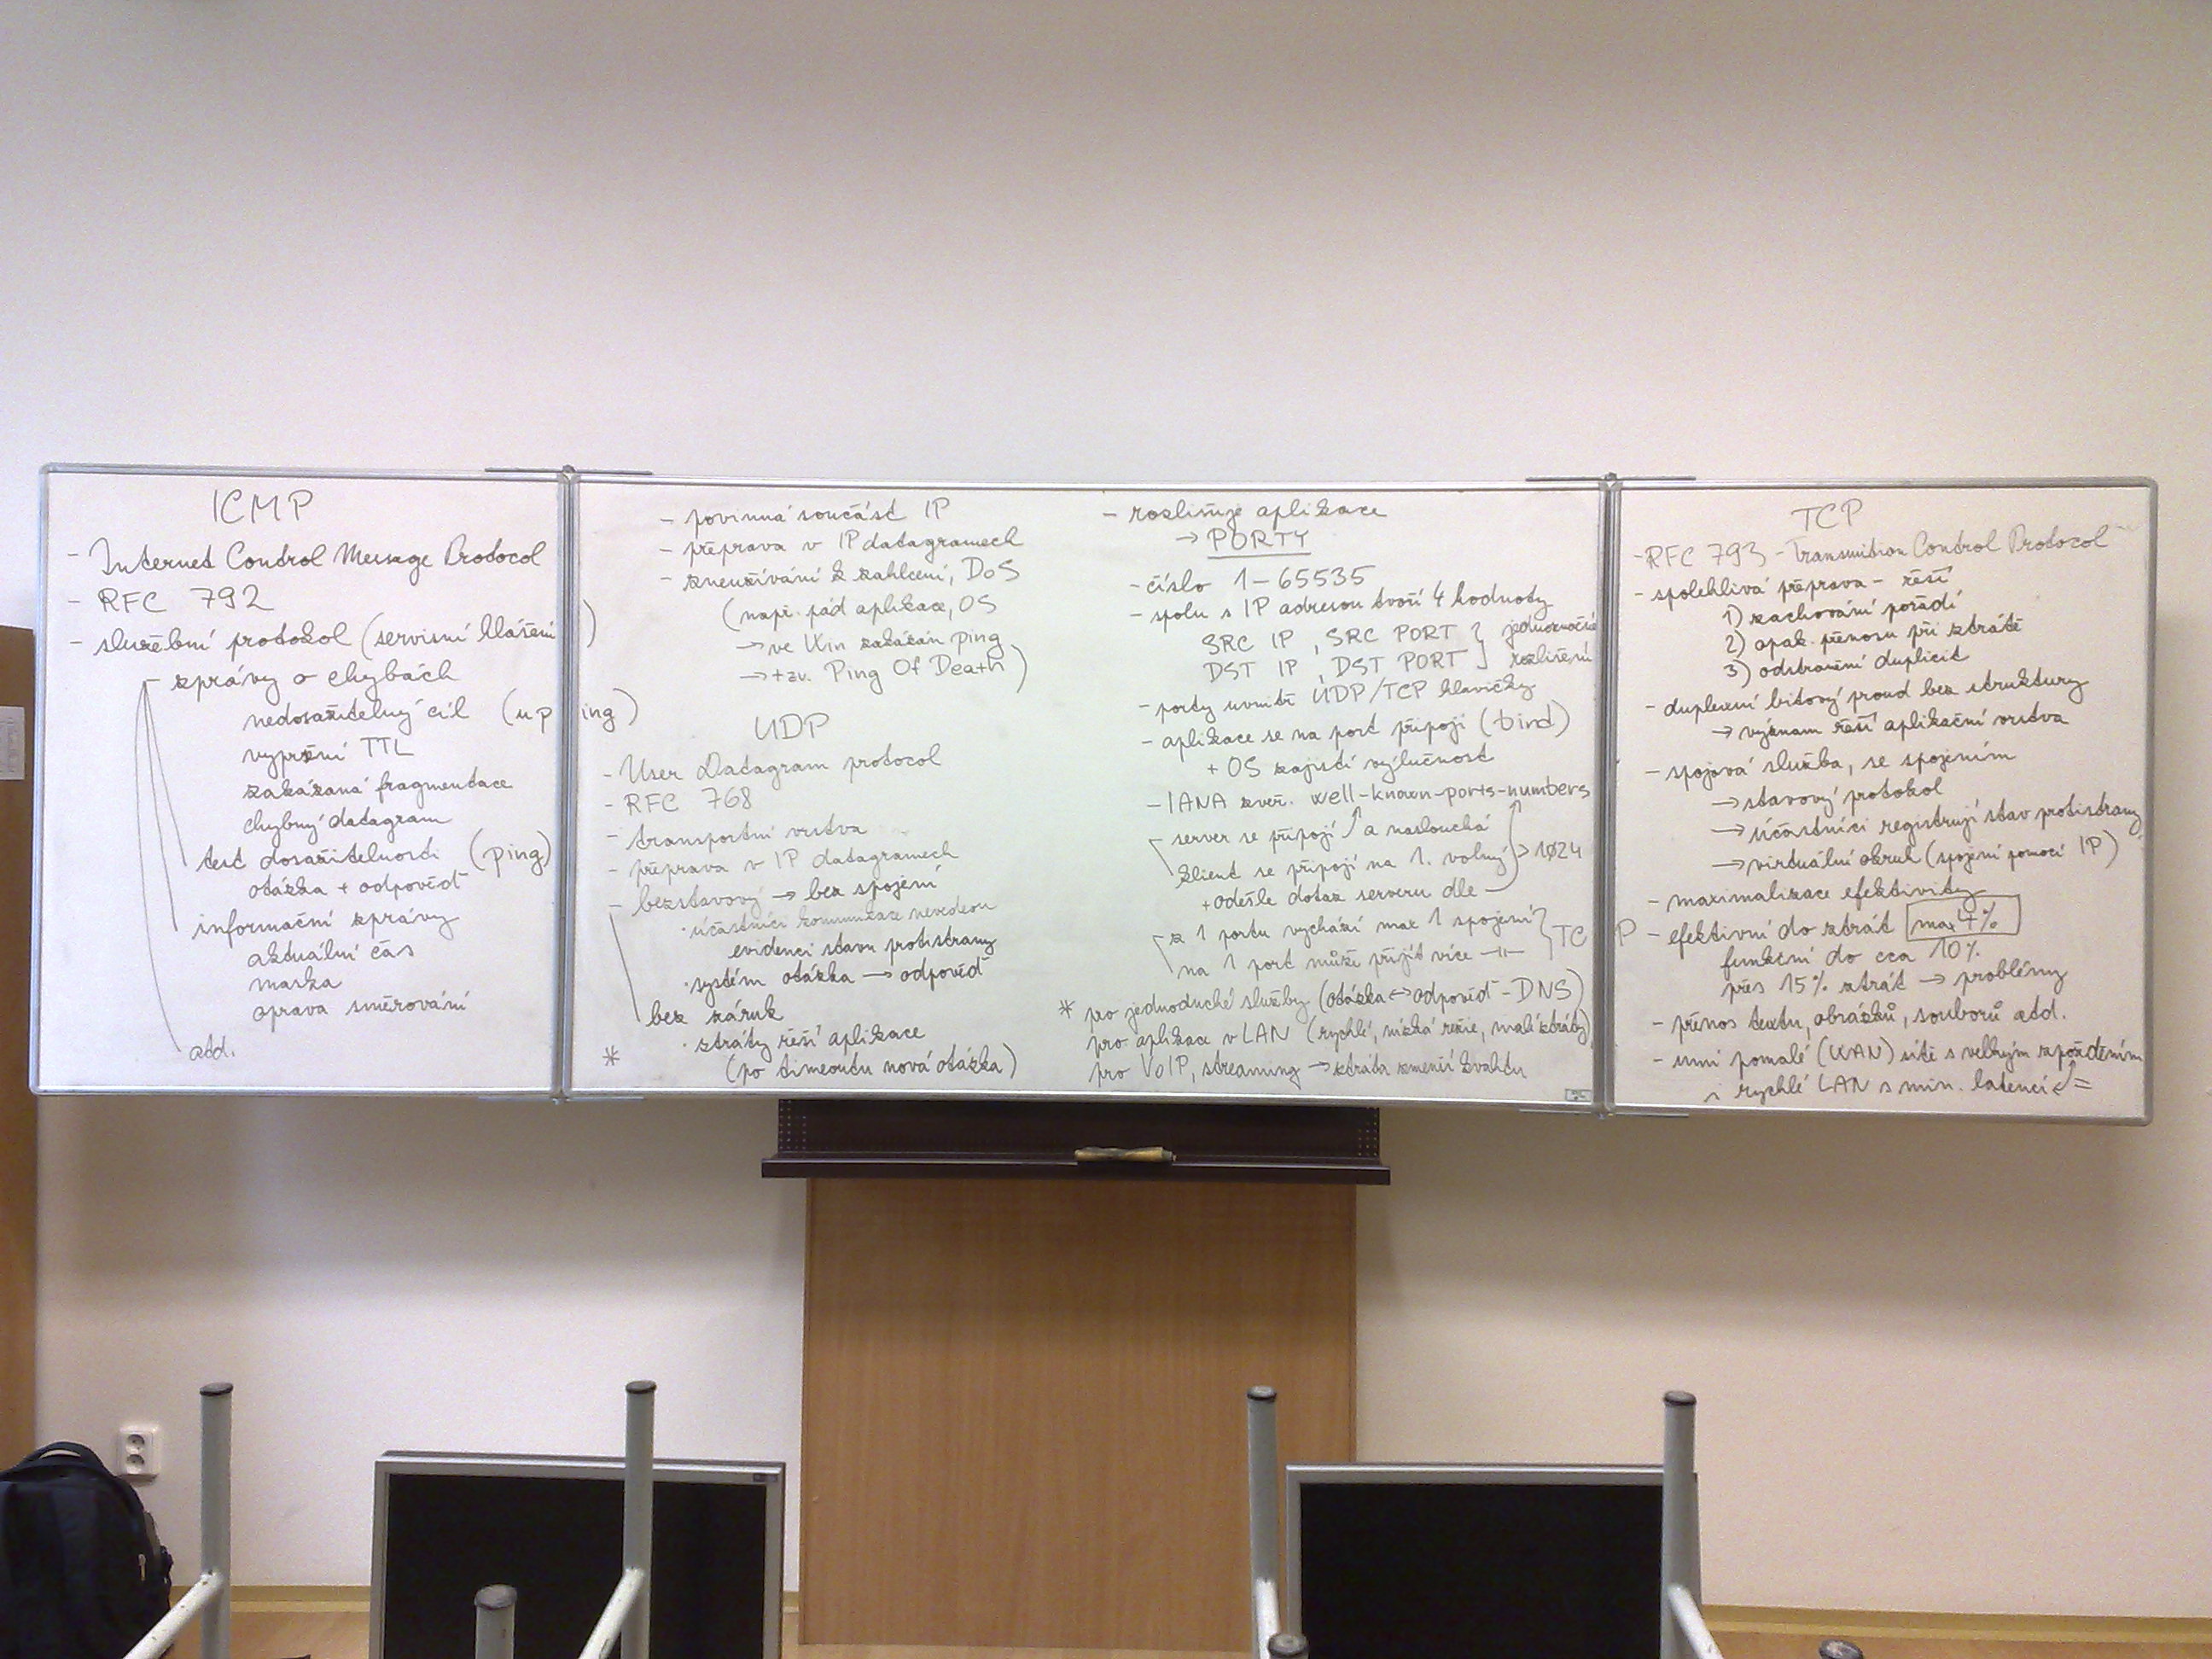 ICMP
- Internet Control Message Protocol
- RFC 792
- služební protokol (servisní hlášení)
- zprávy o chybách
nedosažitelný cíl (up ing)
vypršení TTL
zakázaná fragmentace
chybný datagram
test dosažitelnosti (ping)
otázka + odpověď
informační zprávy
aktuální čas
maska
oprava směrování
atd.
- povinná součást IP
- přeprava v IP datagramech
- zneužívání k zahlcení, DoS
(např. pád aplikace, OS
→ ve Win zakázán ping
→ tzv. Ping Of Death)
UDP
- User Datagram protocol
- RFC 768
- transportní vrstva
- přeprava v IP datagramech
- bezstavový → bez spojení
· účastníci komunikace nevedou
evidenci stavu protistrany
· systém otázka → odpověď
bez záruk
· ztráty řeší aplikace
* (po timeoutu nová otázka)
- rozlišuje aplikace
→ PORTY
- číslo 1-65535
- spolu s IP adresou tvoří 4 hodnoty
SRC IP, SRC PORT } jednoznačné
DST IP, DST PORT } rozlišení
- porty uvnitř UDP/TCP hlavičky
- aplikace se na port připojí (bind)
+ OS zajistí výlučnost
- IANA zveř. well-known-ports-numbers
server se připojí ↑ a naslouchá
klient se připojí na 1. volný > 1024
+ odešle dotaz serveru dle
z 1 portu vychází max 1 spojení } TCP
na 1 port může přijít více -〃-
* pro jednoduché služby (otázka ↔ odpověď - DNS)
pro aplikace v LAN (rychlé, nízká režie, malé ztráty)
pro VoIP, streaming → ztráta zmenší kvalitu
TCP
- RFC 793 - Transmition Control Protocol
- spolehlivá přeprava - řeší
1) zachování pořadí
2) opak. přenosu při ztrátě
3) odstranění duplicit
- duplexní bitový proud bez struktury
→ význam řeší aplikační vrstva
- spojová služba, se spojením
→ stavový protokol
→ účastníci registrují stav protistrany
→ virtuální okruh (spojení pomocí IP)
- maximalizace efektivity
- efektivní do ztrát max 4%
funkční do cca 10%
přes 15% ztrát → problémy
- přenos textu, obrázků, souborů atd.
- umí pomalé (WAN) sítě s velkým zpožděním
i rychlé LAN s min. latencí